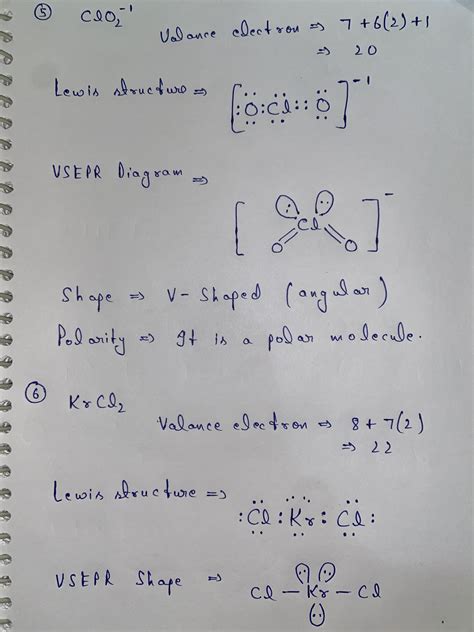 ⑤ ClO₂⁻¹
Valance electron ⇒ 7+6(2)+1
⇒ 20
Lewis structure ⇒ [:O:Cl::O]⁻¹
VSEPR Diagram ⇒
[O=Cl=O]⁻
Shape ⇒ V-Shaped (angular)
Polarity ⇒ It is a polar molecule.
⑥ KrCl₂
Valance electron ⇒ 8+7(2)
⇒ 22
Lewis structure ⇒
:Cl:Kr:Cl:
VSEPR Shape ⇒ Cl–Kr–Cl